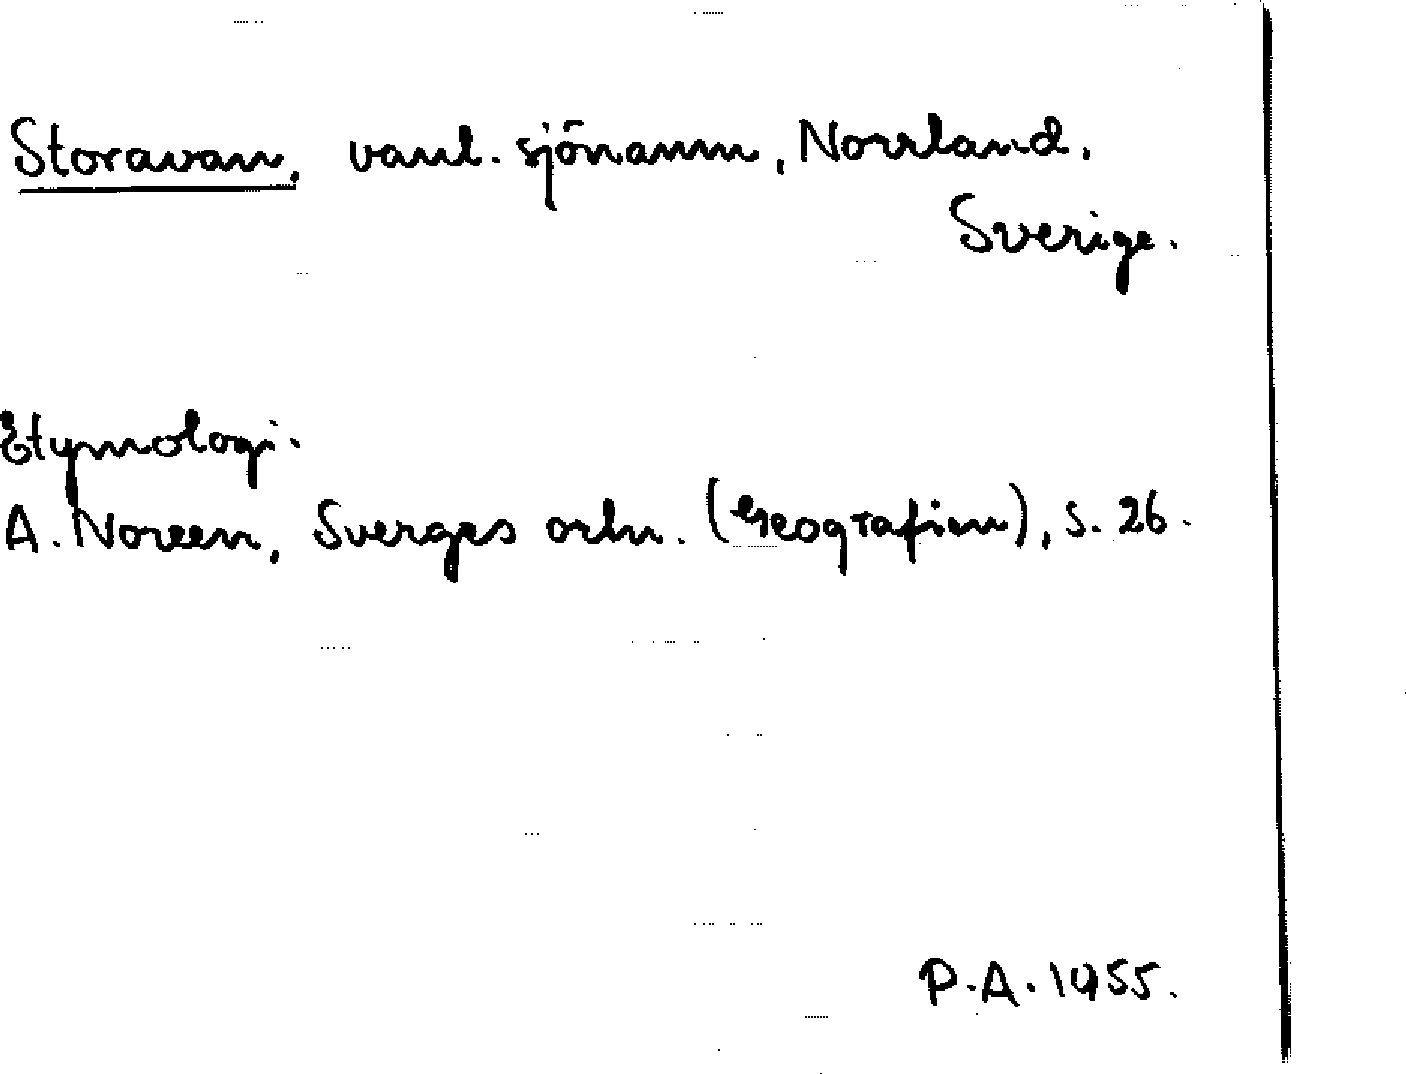 Storavan, vanl. sjönamn, Norrland.
Sverige.
Etymologi.
A. Noreen, Sverges ortn. (Geografien), s. 26.
P.A. 1955.